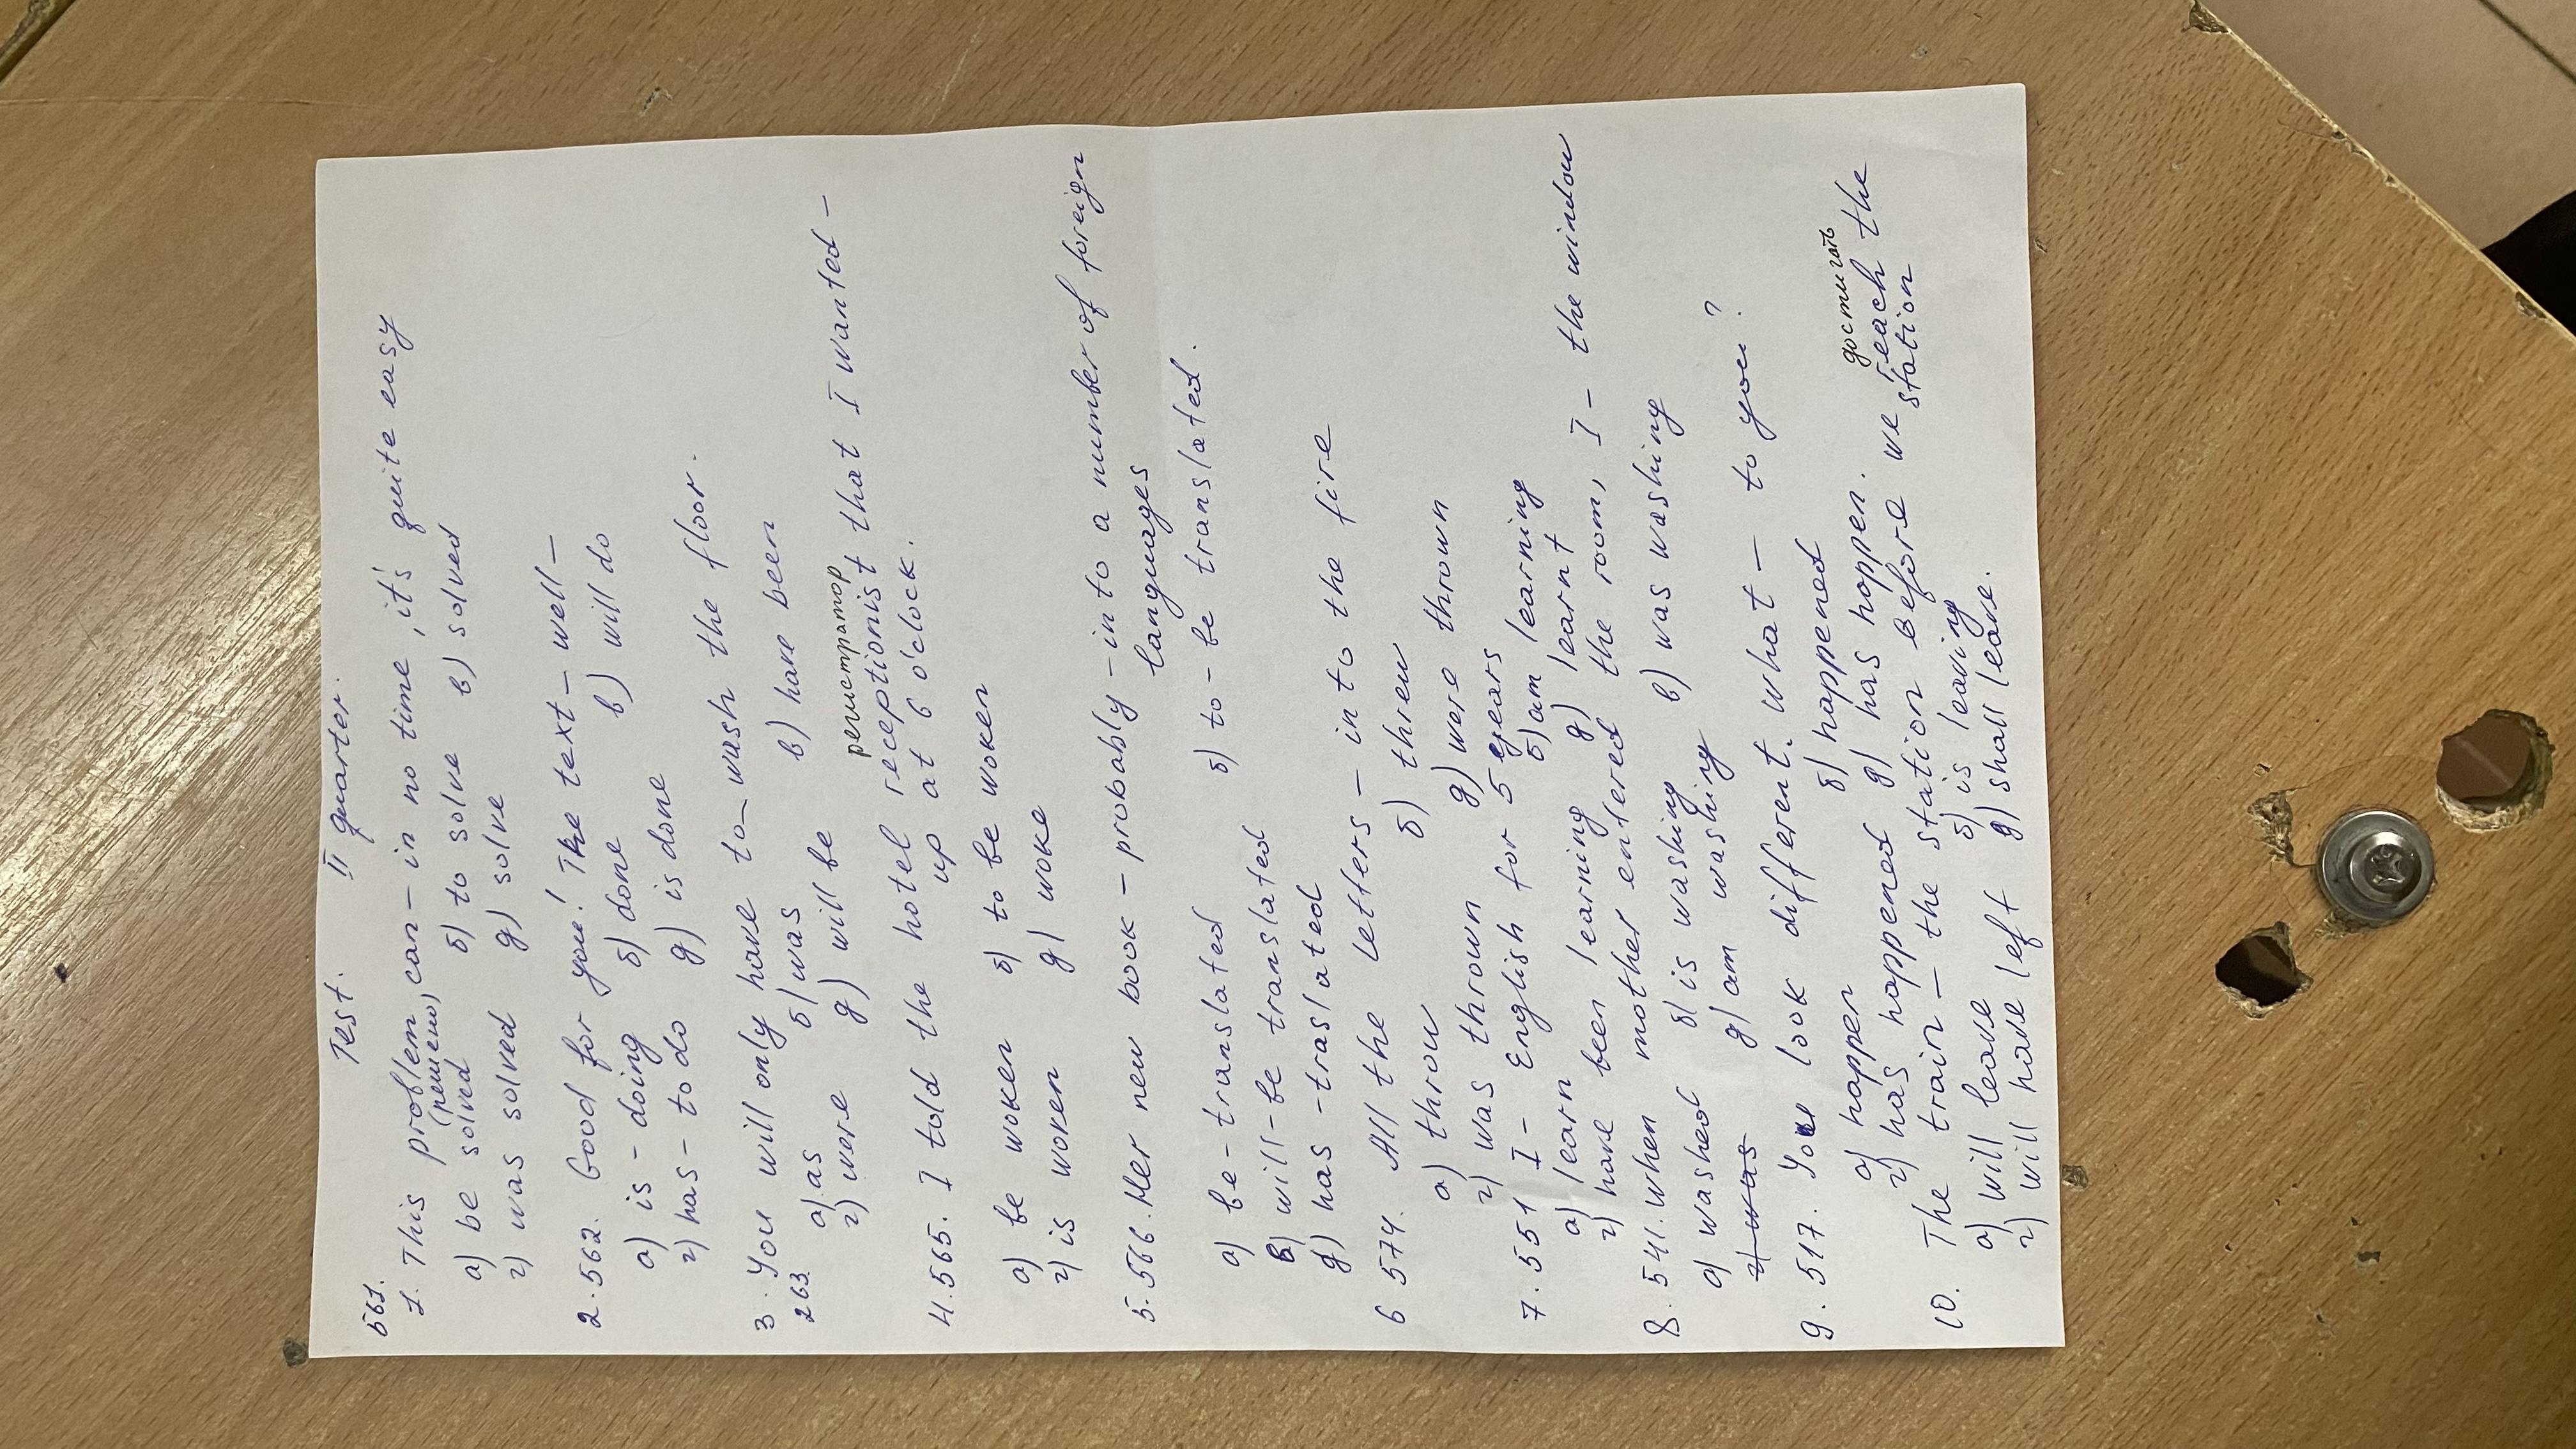 Test. II quarter.
561.
1. This problem, can - in no time, it's quite easy
(решено)
a) be solved б) to solve в) solved
г) was solved д) solve
2. 562. Good for you! The text - well -
a) is - doing б) done в) will do
г) has - to do д) is done
3. You will only have to - wash the floor.
263 a) as б) was в) have been
г) were д) will be
регистратор
4. 565. I told the hotel receptionist that I wanted -
up at 6 o'clock.
a) be woken б) to be woken
г) is woken д) woke
5. 566. Her new book - probably - in to a number of foreign
languages
a) be - translated б) to - be translated.
в) will - be translated
д) has - traslated
6 574. All the letters - in to the fire
a) throw б) threw
г) was thrown д) were thrown
7. 551 I - English for 5 years
a) learn б) am learning
г) have been learning д) learnt
8. 541. when mother entered the room, I - the window
a) washed б) is washing в) was washing
г) was д) am washing
9. 517. You look different. What - to you?
a) happen б) happened
г) has happened д) has happen.
достигать
10. The train - the station before we reach the
station
a) will leave б) is leaving
г) will have left д) shall leave.